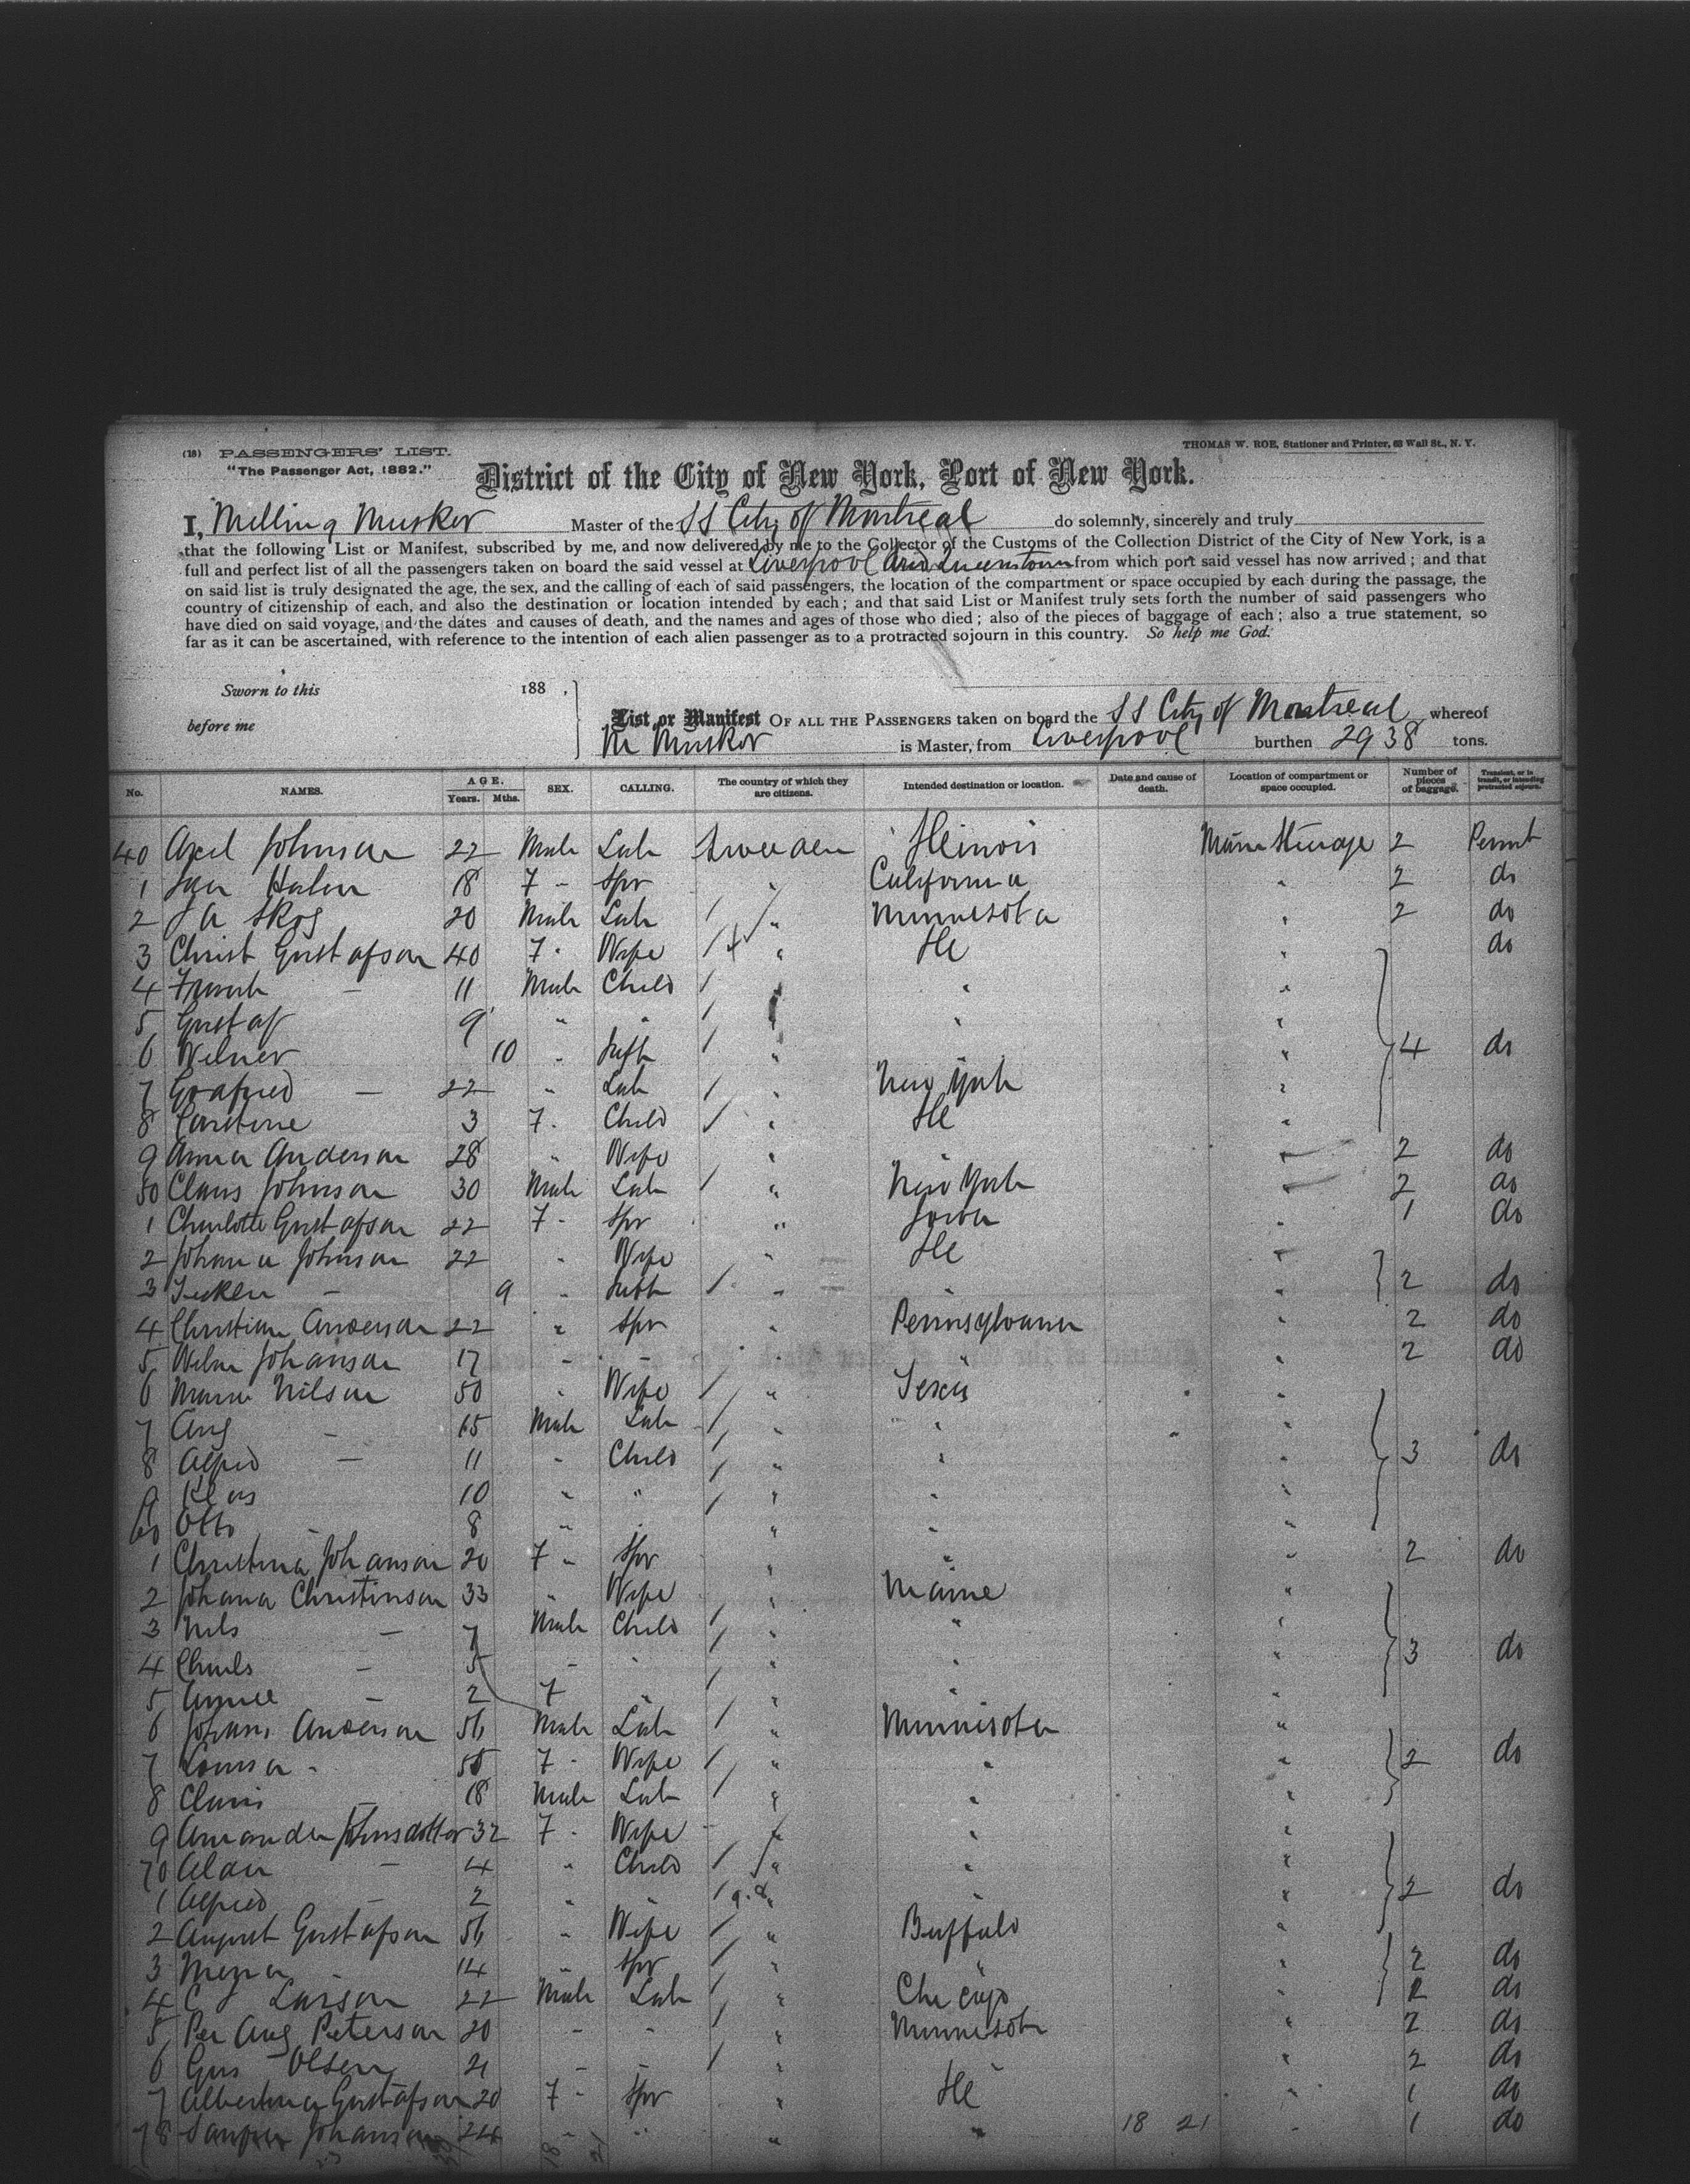 (18) PASSENGERS' LIST.
"The Passenger Act, 1882."
THOMAS W. ROE, Stationer and Printer, 63 Wall St., N. Y.
District of the City of New York, Port of New York.
I, Melling Musker Master of the SS City of Montreal do solemnly, sincerely and truly
that the following List or Manifest, subscribed by me, and now delivered by me to the Collector of the Customs of the Collection District of the City of New York, is a
full and perfect list of all the passengers taken on board the said vessel at Liverpool and Queenstown from which port said vessel has now arrived; and that
on said list is truly designated the age, the sex, and the calling of each of said passengers, the location of the compartment or space occupied by each during the passage, the
country of citizenship of each, and also the destination or location intended by each; and that said List or Manifest truly sets forth the number of said passengers who
have died on said voyage, and the dates and causes of death, and the names and ages of those who died; also of the pieces of baggage of each; also a true statement, so
far as it can be ascertained, with reference to the intention of each alien passenger as to a protracted sojourn in this country. So help me God.
Sworn to this 188 .
before me
List or Manifest OF ALL THE PASSENGERS taken on board the SS City of Montreal whereof
M Musker is Master, from Liverpool burthen 2938 tons.
No. NAMES. AGE. Years. Mths. SEX. CALLING. The country of which they are citizens. Intended destination or location. Date and cause of death. Location of compartment or space occupied. Number of pieces of baggage. Transient, or in transit, or intending protracted sojourn.
40 Axel Johnson 22 Male Lab Sweeden Illinois Main Steerage 2 Permt
1 18 F " Spr " California " 2 do
2 J A Skog 20 Male Lab " Minnesota " 2 do
3 Christ Gustafson 40 F " Wife " Ill " do
4 Frank — 11 Male Child " " "
5 Gustaf 9 " " " " "
6 10 " Inft " " 4 do
7 — 22 " Lab " New York "
8 3 F " Child " Ill "
9 Anna Anderson 28 " Wife " " 2 do
50 Claus Johnson 30 Male Lab " New York " 2 do
1 Charlotte Gustafson 22 F " Spr " Iowa " 1 do
2 Johana Johnson 22 " Wife " Ill "
3 — 9 " Inft " " 2 do
4 Christian Anderson 22 " Spr " Pennsylvania " 2 do
5 Johanson 17 " " " " " 2 do
6 Nilson 50 " Wife " Texas "
7 Aug — 15 Male Lab " " "
8 Alfred — 11 " Child " " " 3 do
9 Klas 10 " " " " "
60 Otto — 8 " " " " "
1 Christina Johanson 20 F " Spr " " " 2 do
2 Johana Christinson 33 " Wife " Maine "
3 Nils — 7 Male Child " " "
4 Charls — 5 " " " " " 3 do
5 Annie — 2 F " " " "
6 Anderson 56 Male Lab " Minnisota "
7 Louisa " 55 F " Wife " " " 2 do
8 — 18 Male Lab " " "
9 Amanda Johnsdotter 32 F " Wife " " "
70 — 4 " Child " " "
1 Alfred — 2 " " " " 2 do
2 August Gustafson 56 " Wife " Buffalo "
3 14 " Spr " " " 2 do
4 C J Larson 22 Male Lab " Chicago " 2 do
5 Per Aug Peterson 20 " " " Minnesota " 2 do
6 Gus Olsen 21 " " " " " 2 do
7 Albertina Gustafson 20 F " Spr " Ill " 1 do
78 Johanson 24 " " " " 18 21 1 do